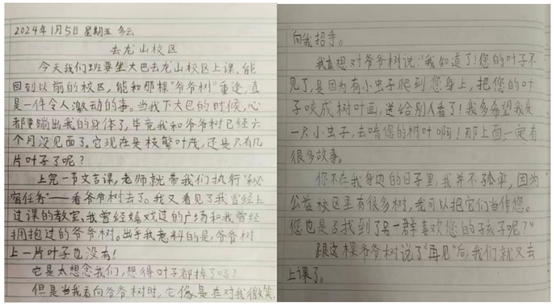 2024年1月5日 星期五 多云
去龙山校区
今天我们班要坐大巴去龙山校区上课,能
回到以前的校区,能和那棵“爷爷树”重逢,真
是一件令人激动的事。当我下大巴的时候,心
都要蹦出我的身体了,毕竟我和爷爷树已经六
个月没见面了。它现在是枝繁叶茂,还是只有几
片叶子了呢?
上完一节文言课,老师就带我们执行“秘
密任务”——看爷爷树去了。我又看见了我曾经上
过课的教室,我曾经嬉戏过的广场和我曾经
拥抱过的爷爷树。出乎我意料的是,爷爷树
上一片叶子也没有!
它是太想念我们,想得叶子都掉了吗?
但是当我看向爷爷树时,它像是在对我微笑,
向我招手。
我真想对爷爷树说:“我知道了!您的叶子不
见了,是因为有小虫子爬到您身上,把您的叶
子咬成树叶画,送给别人看了!我多希望我是
一只小虫子,去啃您的树叶啊!那上面一定有
很多故事。
你不在我身边的日子里,我并不孤单,因为
公益校区里有很多树,我可以把它们当作您。
您也是否找到了另一群喜欢您的孩子呢?”
跟这棵爷爷树说了“再见”后,我们就又去
上课了。